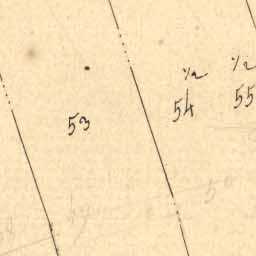 ½ ½
53 54 55